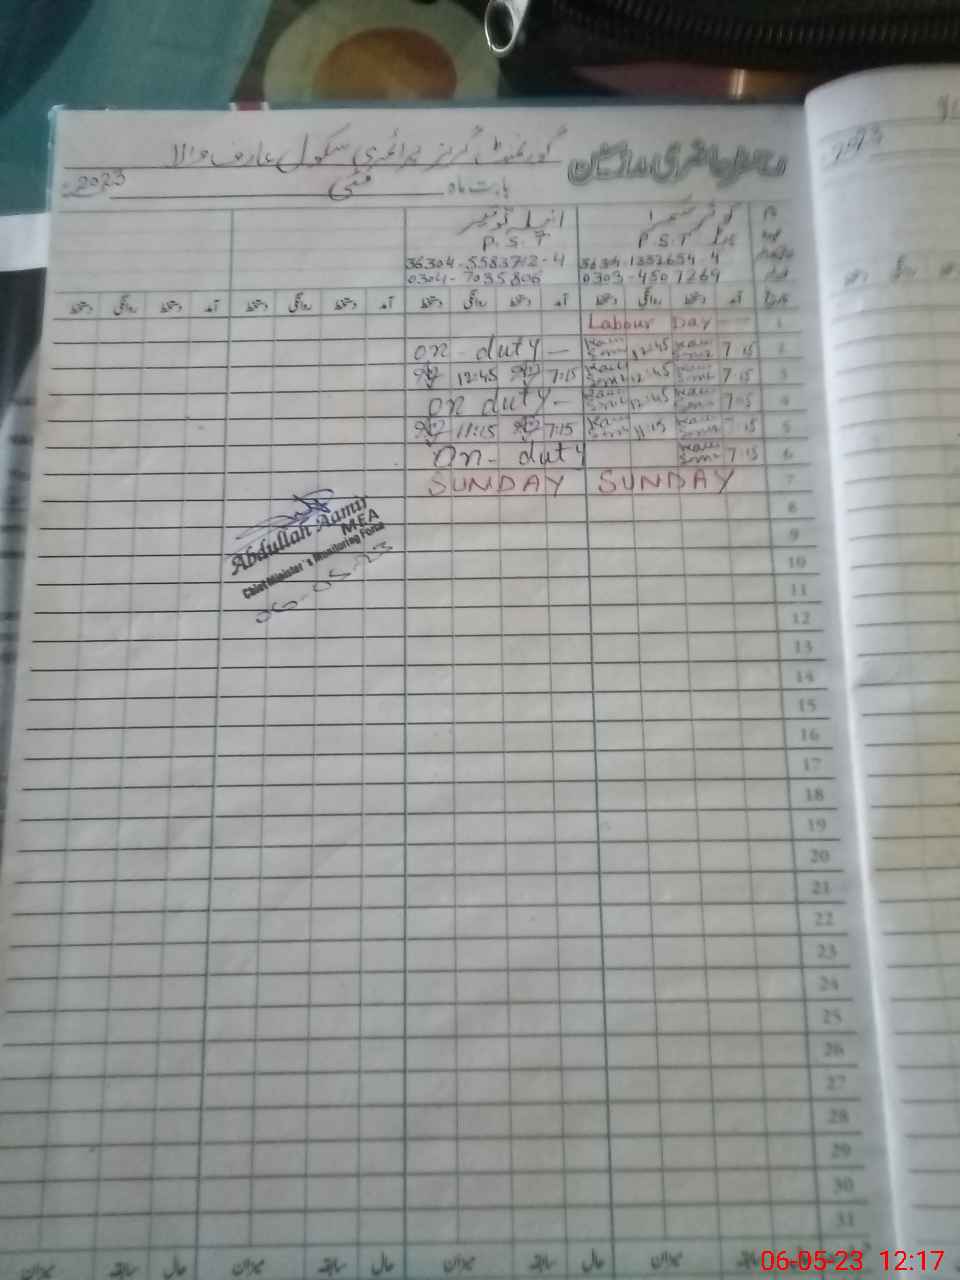 گورنمنٹ گرلز پرائمری سکول عارف والا
رجسٹر حاضری مدرسین
2023 مئی بابت ماہ
P.S.T P.S.T
36304-5583712-4
0304-7035806 0303-4507269
دستخط روانگی دستخط آمد دستخط روانگی دستخط آمد دستخط روانگی دستخط آمد دستخط روانگی دستخط آمد تاریخ
Labour Day 1
on-duty 12:45 7:15 2
12:45 7:15 12:45 7:15 3
on duty 12:45 7:15 4
11:15 7:15 11:15 7:15 5
on-duty 7:15 6
SUNDAY SUNDAY 7
8
9
10
11
12
13
14
15
16
17
18
19
20
21
22
23
24
25
26
27
28
29
30
31
Abdullah Aamir
MEA
Chief Minister's Monitoring Force
06-05-23
میزان سابقہ حال میزان سابقہ حال میزان سابقہ حال میزان سابقہ حال
2023
06-05-23 12:17